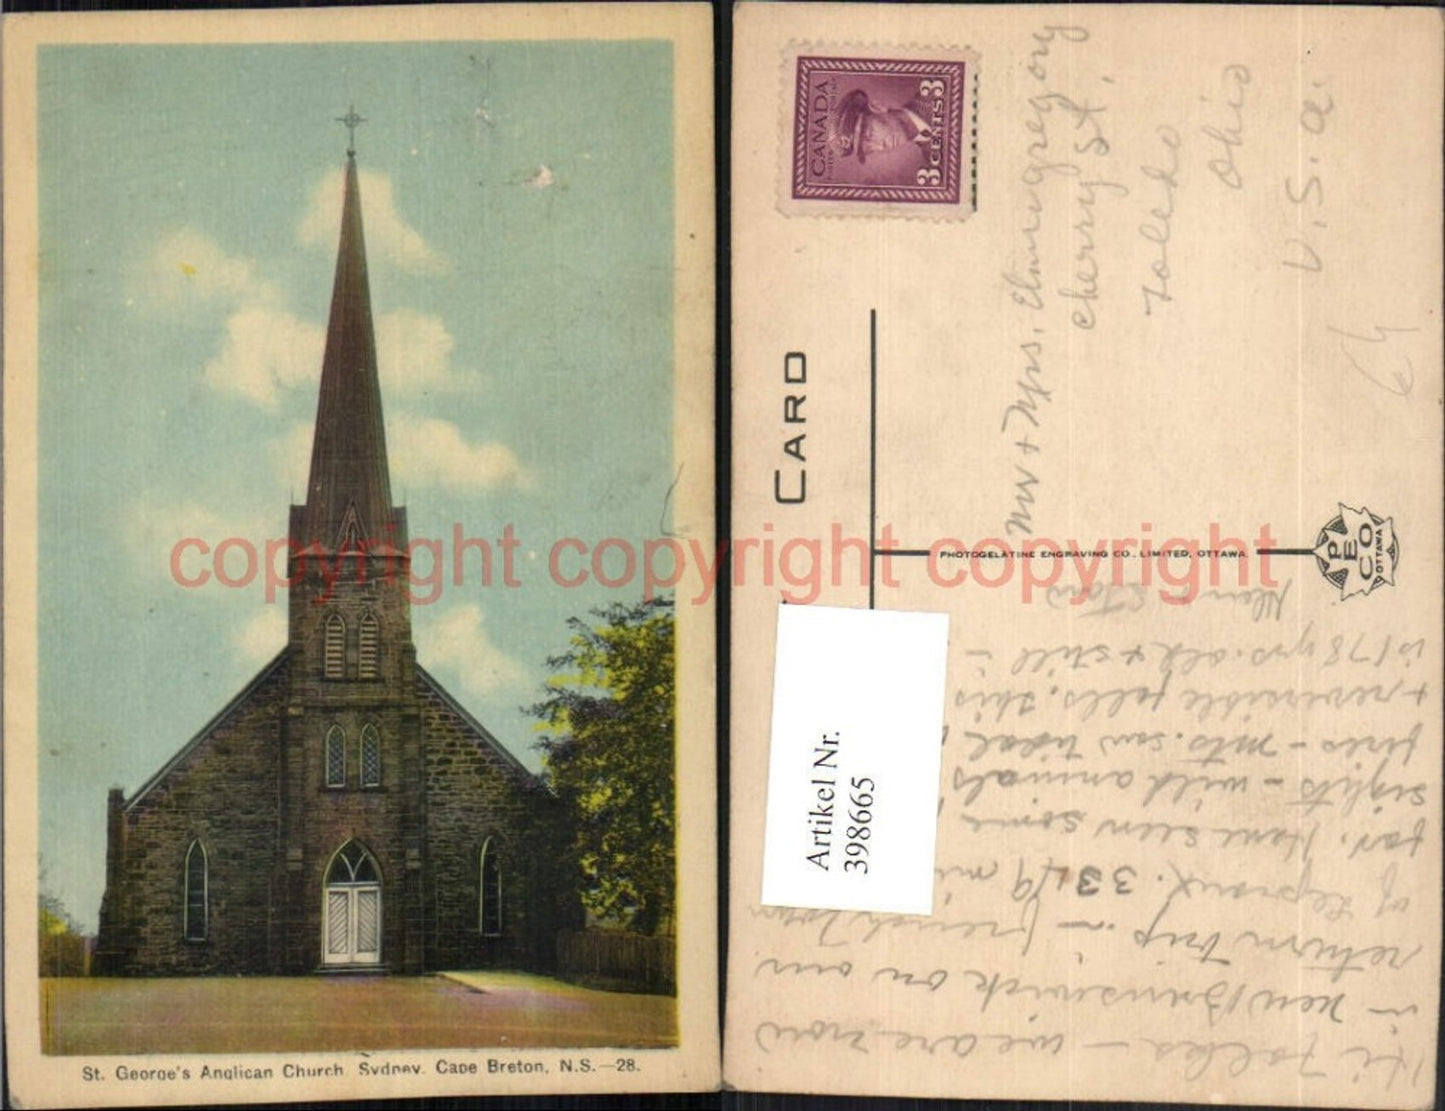 St. George's Anglican Church, Sydney, Cape Breton, N.S.—28.
copyright copyright copyright
CANADA
3 CENTS 3
CARD
PHOTOGELATINE ENGRAVING CO., LIMITED, OTTAWA
PECO
OTTAWA
Mr + Mrs. Elmer Gregory
Cherry St,
Toledo
Ohio
U.S.A.
Artikel Nr.
398665
Hi Folks — we are now
in New Brunswick on our
return trip in French Town
of 3349 mi
far. Have seen some
sights - wild animals
fires - mts. saw tidal
+ reversible falls. This
is 178 yrs. old + still in